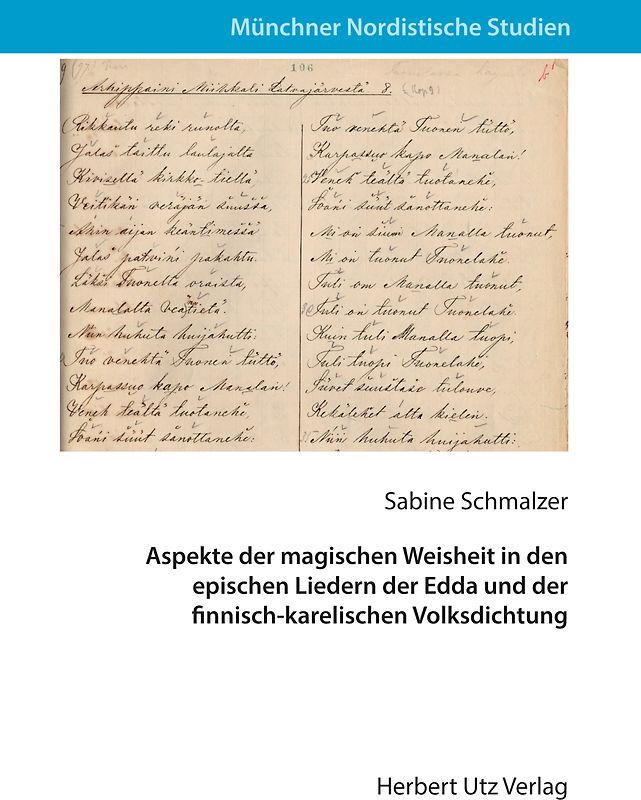 Münchner Nordistische Studien
106
Arhippaini Miihkali Latvajärvestä 8.
Rikkautu reki runolta,
Jalas taittu laulajalta
Kivisellä kirkko-tiellä,
Veitikän veräjän suussa,
Äkin äijän kääntimessä
Jalas patvini pakahtu.
Läksi Tuonelta oraista,
Manalalta
Niin huhuta huijahutti:
Tuo venehtä Tuonen tüttö,
Karpassuo kapo Manalan!
Veneh teältä tuotanehe,
süüt sanottanehe:
Tuo venehtä Tuonen tüttö,
Karpassuo kapo Manalan!
Veneh teältä tuotanehe,
süüt sanottanehe:
Mi on siun Manalla tuonut,
Mi on tuonut Tuonelahe.
Tuli on Manalla tuonut,
Tuli on tuonut Tuonelahe.
Kuin tuli Manalla tuopi,
Tuli tuopi Tuonelahe,
tulouve,
Kekälehet
Niin huhuta huijahutti:
Sabine Schmalzer
Aspekte der magischen Weisheit in den
epischen Liedern der Edda und der
finnisch-karelischen Volksdichtung
Herbert Utz Verlag